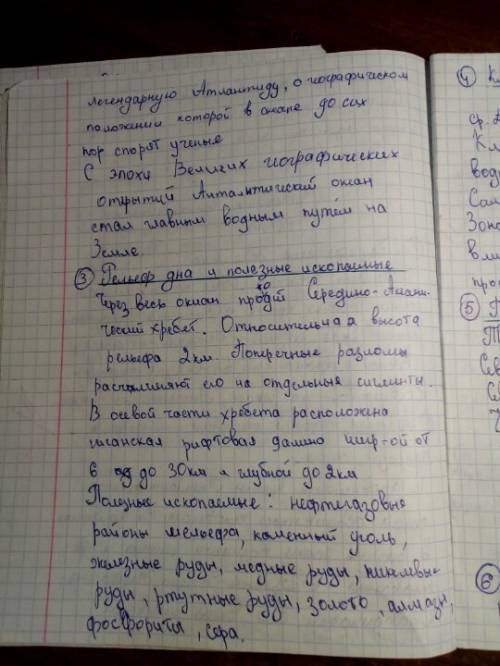 легендарную Атлантиду, о географическом
положении которой в океане до сих
пор спорят ученые
С эпохи Великих географических
открытий Анталантический океан
стал главным водным путём на
Земле.
③ Рельеф дна и полезные ископаемые
Через весь океан проходит Средино-Атланти-
ческий хребет. Относительная высота
рельефа 2 км. Поперечные разломы
расчленяют его на отдельные сигменты.
В осевой части хребета расположена
гиганская рифтовая далино шир-ой от
6 до 30км и глубной до 2км
Полезные ископаемые: нефтегазовые
районы шельефа, каменный уголь,
железные руды, медные руды, никелвые
руды, ртутные руды, золото, алмазы,
фосфориты, сера.
④ К
ср.
Кли
водн
Сам
Зоно
вли
про
⑤
Сев
⑥